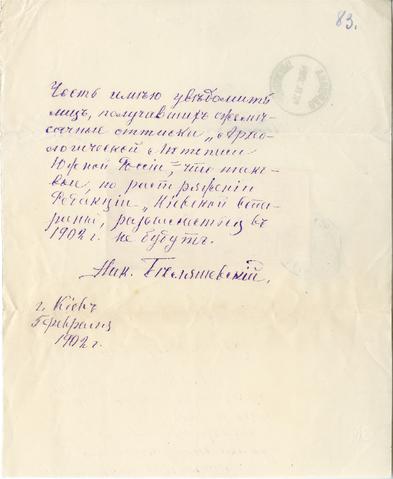 83.
Честь имѣю увѣдомить
лицъ, получавшихъ ежемѣ-
сячные оттиски „Архе-
ологической Лѣтописи
Южной Россіи", что тако-
вые, по распоряженію
Редакціи „Кіевской Ста-
рины", разсылаться въ
1902 г. не будутъ.
Ник. Бѣляшевскій.
г. Кіевъ
Февраля
1902 г.